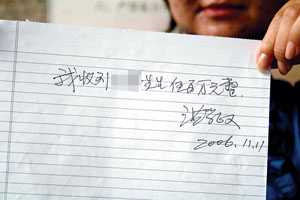 我收到 先生伍百万元整.
2006.11.11